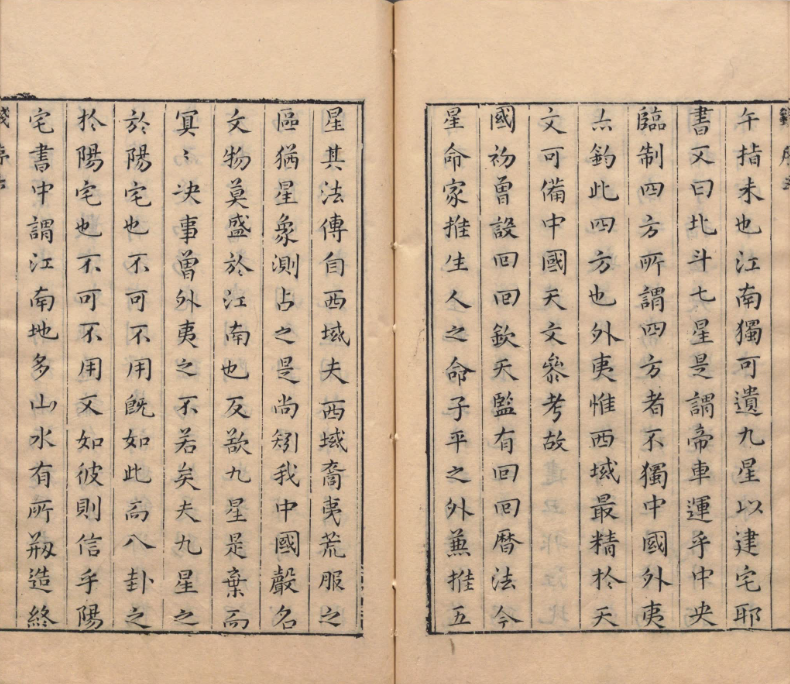 午指未也江南獨可遺九星以建宅耶
書又曰北斗七星是謂帝車運乎中央
臨制四方所謂四方者不獨中國外夷
亦鈞此四方也外夷惟西域最精於天
文可備中國天文叅考故
國初曾設回回欽天監有回回曆法今
星命家推生人之命子平之外兼推五
星其法傳自西域夫西域裔夷荒服之
區猶星象測占之是尚矧我中國聲名
文物莫盛於江南也反欲九星是棄而
冥〻决事曾外夷之不若矣夫九星之
於陽宅也不可不用旣如此而八卦之
於陽宅也不可不用又如彼則信乎陽
宅書中謂江南地多山水有所剏造終